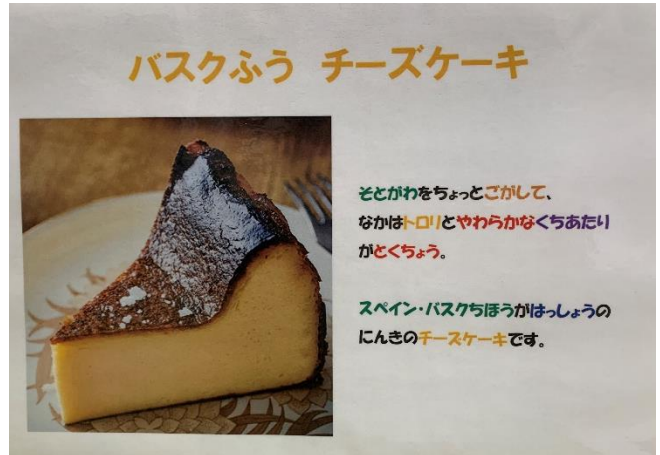 バスクふう チーズケーキ
そとがわをちょっとごがして、
なかはトロリとやわらかなくちあたり
がとくちょう。
スペイン・バスクちほうがはっしょうの
にんきのチーズケーキです。